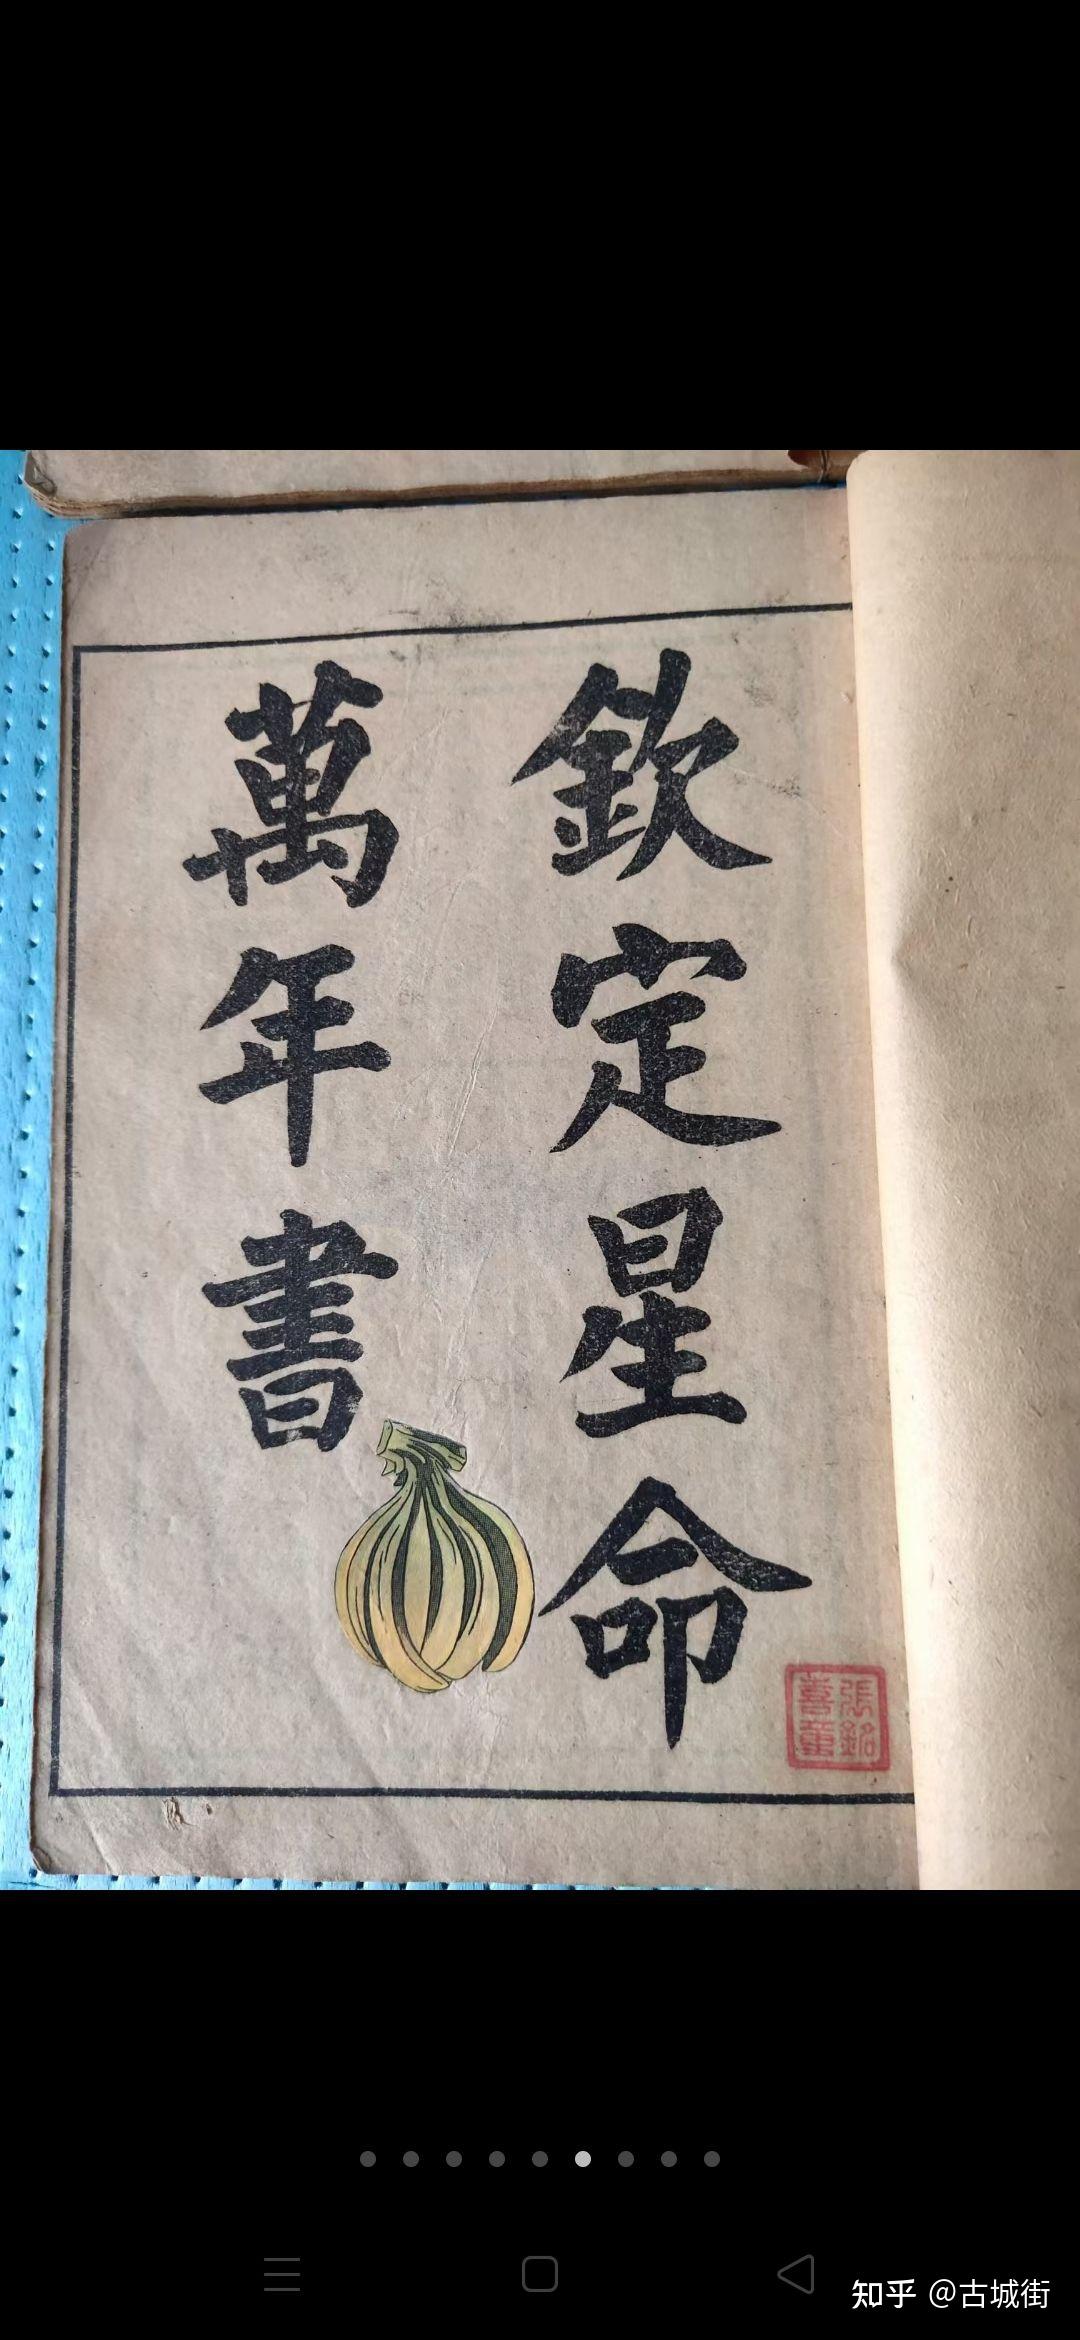 欽定星命
萬年書
張銘
知乎 @古城街